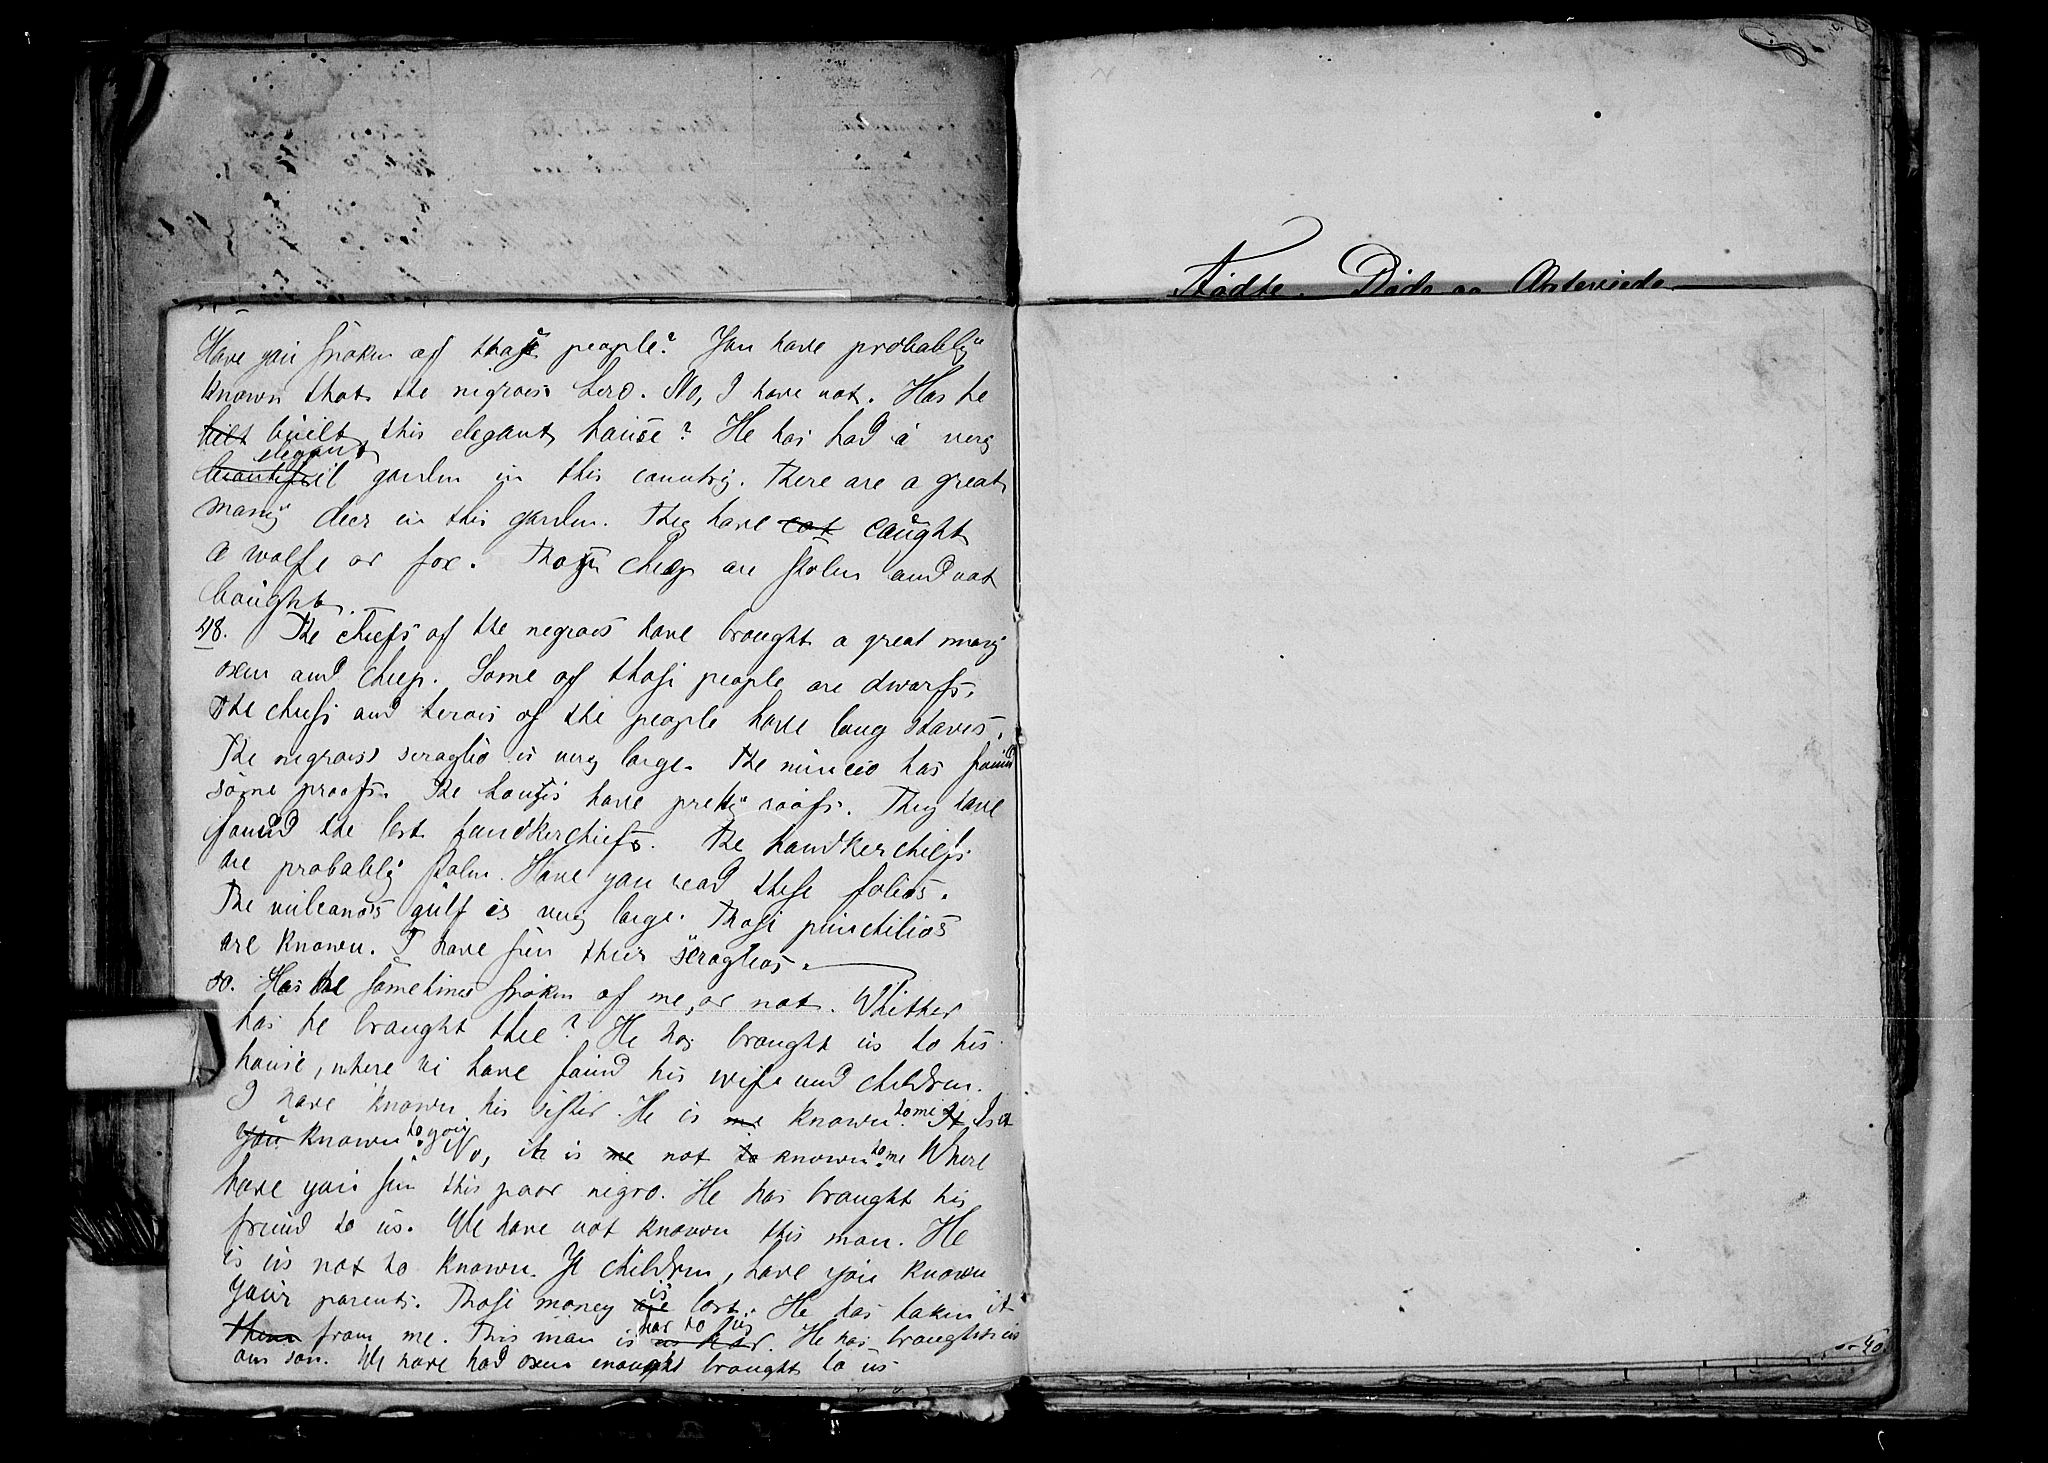 Have you spoken of those people? You have probably
known that the negroes hero. No, I have not. Has he
bilt built this elegant house? He has had a very
elegant
beautiful garden in this country. There are a great
many deer in this garden. They have cat caught
a wolfe or fox. Those cheep are stolen and not
bought.
48. The chiefs of the negroes have brought a great many
oxen and cheep. Some of those people are dwarfs.
The chiefs and heroes of the people have long staves.
The negroes seraglio is very large. The nuncio has found
some proofs. The houses have pretty roofs. They have
found the lost handkerchiefs. The handkerchiefs
are probably stolen. Have you read these folios.
The vulcanos gulf is very large. Those punctilios
are known. I have seen their seraglios.
50. Has he sometimes spoken of me, or not. Whither
has he brought thee? He has brought us to his
house, where we have found his wife and children.
I have known his sister. He is me known to me. It Is it
you known to you. No, it is me not to known to me Where
have you seen this poor negro. He has brought his
freind to us. We have not known this man. He
is us not to known. Ye children, have you known
your parents. Those money are is lost. He has taken it
them from me. This man is us har har to us. He has brought us
our son. We have had oxen enought brought to us
Fødte. Døde og
40